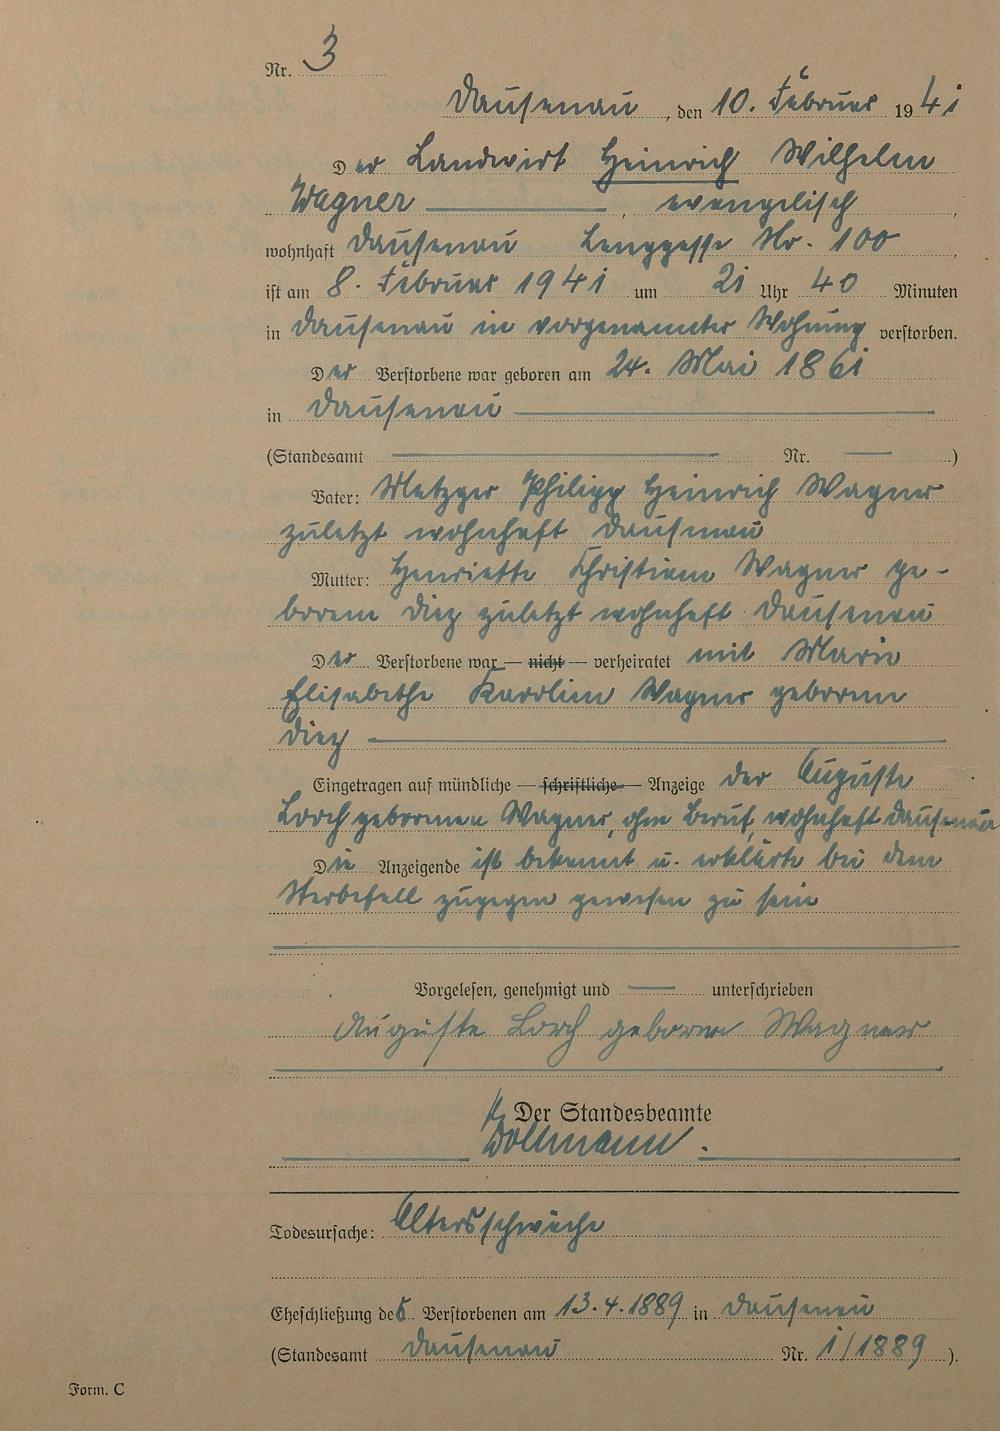 Nr. 3
Dausenau, den 10. Februar 1941
Der Landwirt Heinrich Wilhelm
Wagner, evangelisch,
wohnhaft Dausenau Langgasse Nr. 100,
ist am 8. Februar 1941 um 21 Uhr 40 Minuten
in Dausenau in vorgenannter Wohnung verstorben.
Der Verstorbene war geboren am 24. Mai 1861
in Dausenau
(Standesamt Nr. )
Vater: Metzger Philipp Heinrich Wagner
zuletzt wohnhaft Dausenau
Mutter: Henriette Christiane Wagner ge-
borene Diez zuletzt wohnhaft Dausenau
Der Verstorbene war — nicht — verheiratet mit Marie
Elisabethe Karoline Wagner geborene
Diez
Eingetragen auf mündliche — schriftliche — Anzeige der Auguste
Lorch geborenen Wagner, ohne Beruf, wohnhaft Dausenau
Die Anzeigende ist bekannt u. erklärte bei dem
Sterbefall zugegen gewesen zu sein
Vorgelesen, genehmigt und unterschrieben
Auguste Lorch geborene Wagner
Der Standesbeamte
Todesursache: Altersschwäche
Eheschließung des Verstorbenen am 13.4.1889 in Dausenau
(Standesamt Dausenau Nr. 1/1889).
Form. C